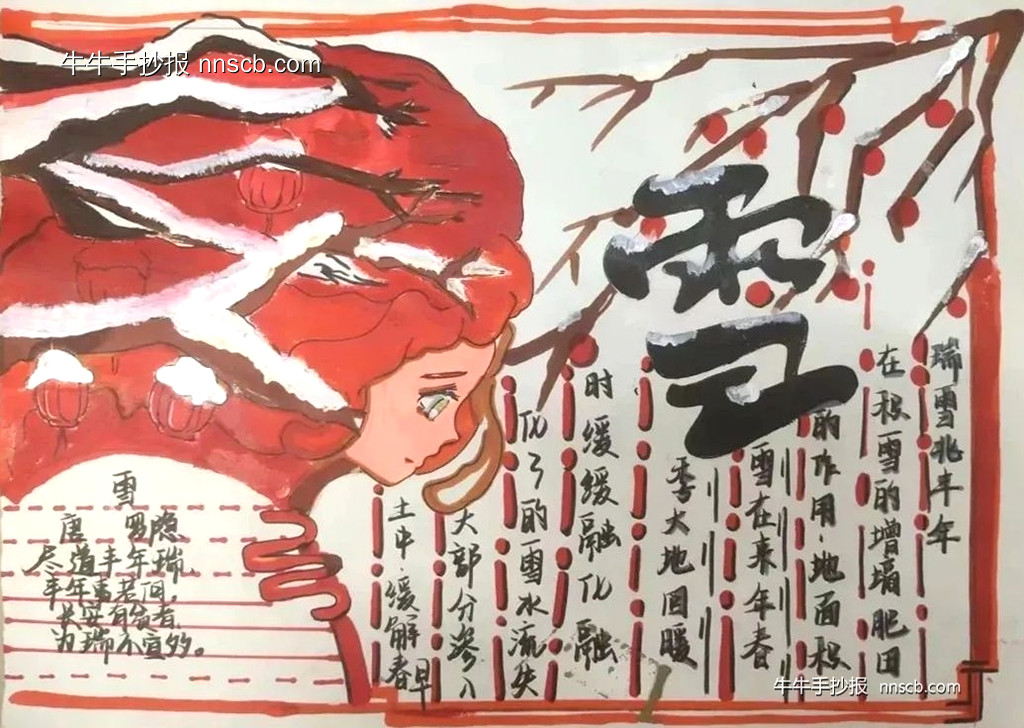 牛牛手抄报 nnscb.com
雪
瑞雪兆丰年
在积雪的增墒肥田
的作用,地面积
雪在来年春
季大地回暖
时缓缓融化融
化了的雪水流失
大部分渗入
土中,缓解春早
雪
唐 罗隐
尽道丰年瑞,
丰年事若何,
长安有贫者,
为瑞不宜多。
牛牛手抄报 nnscb.com